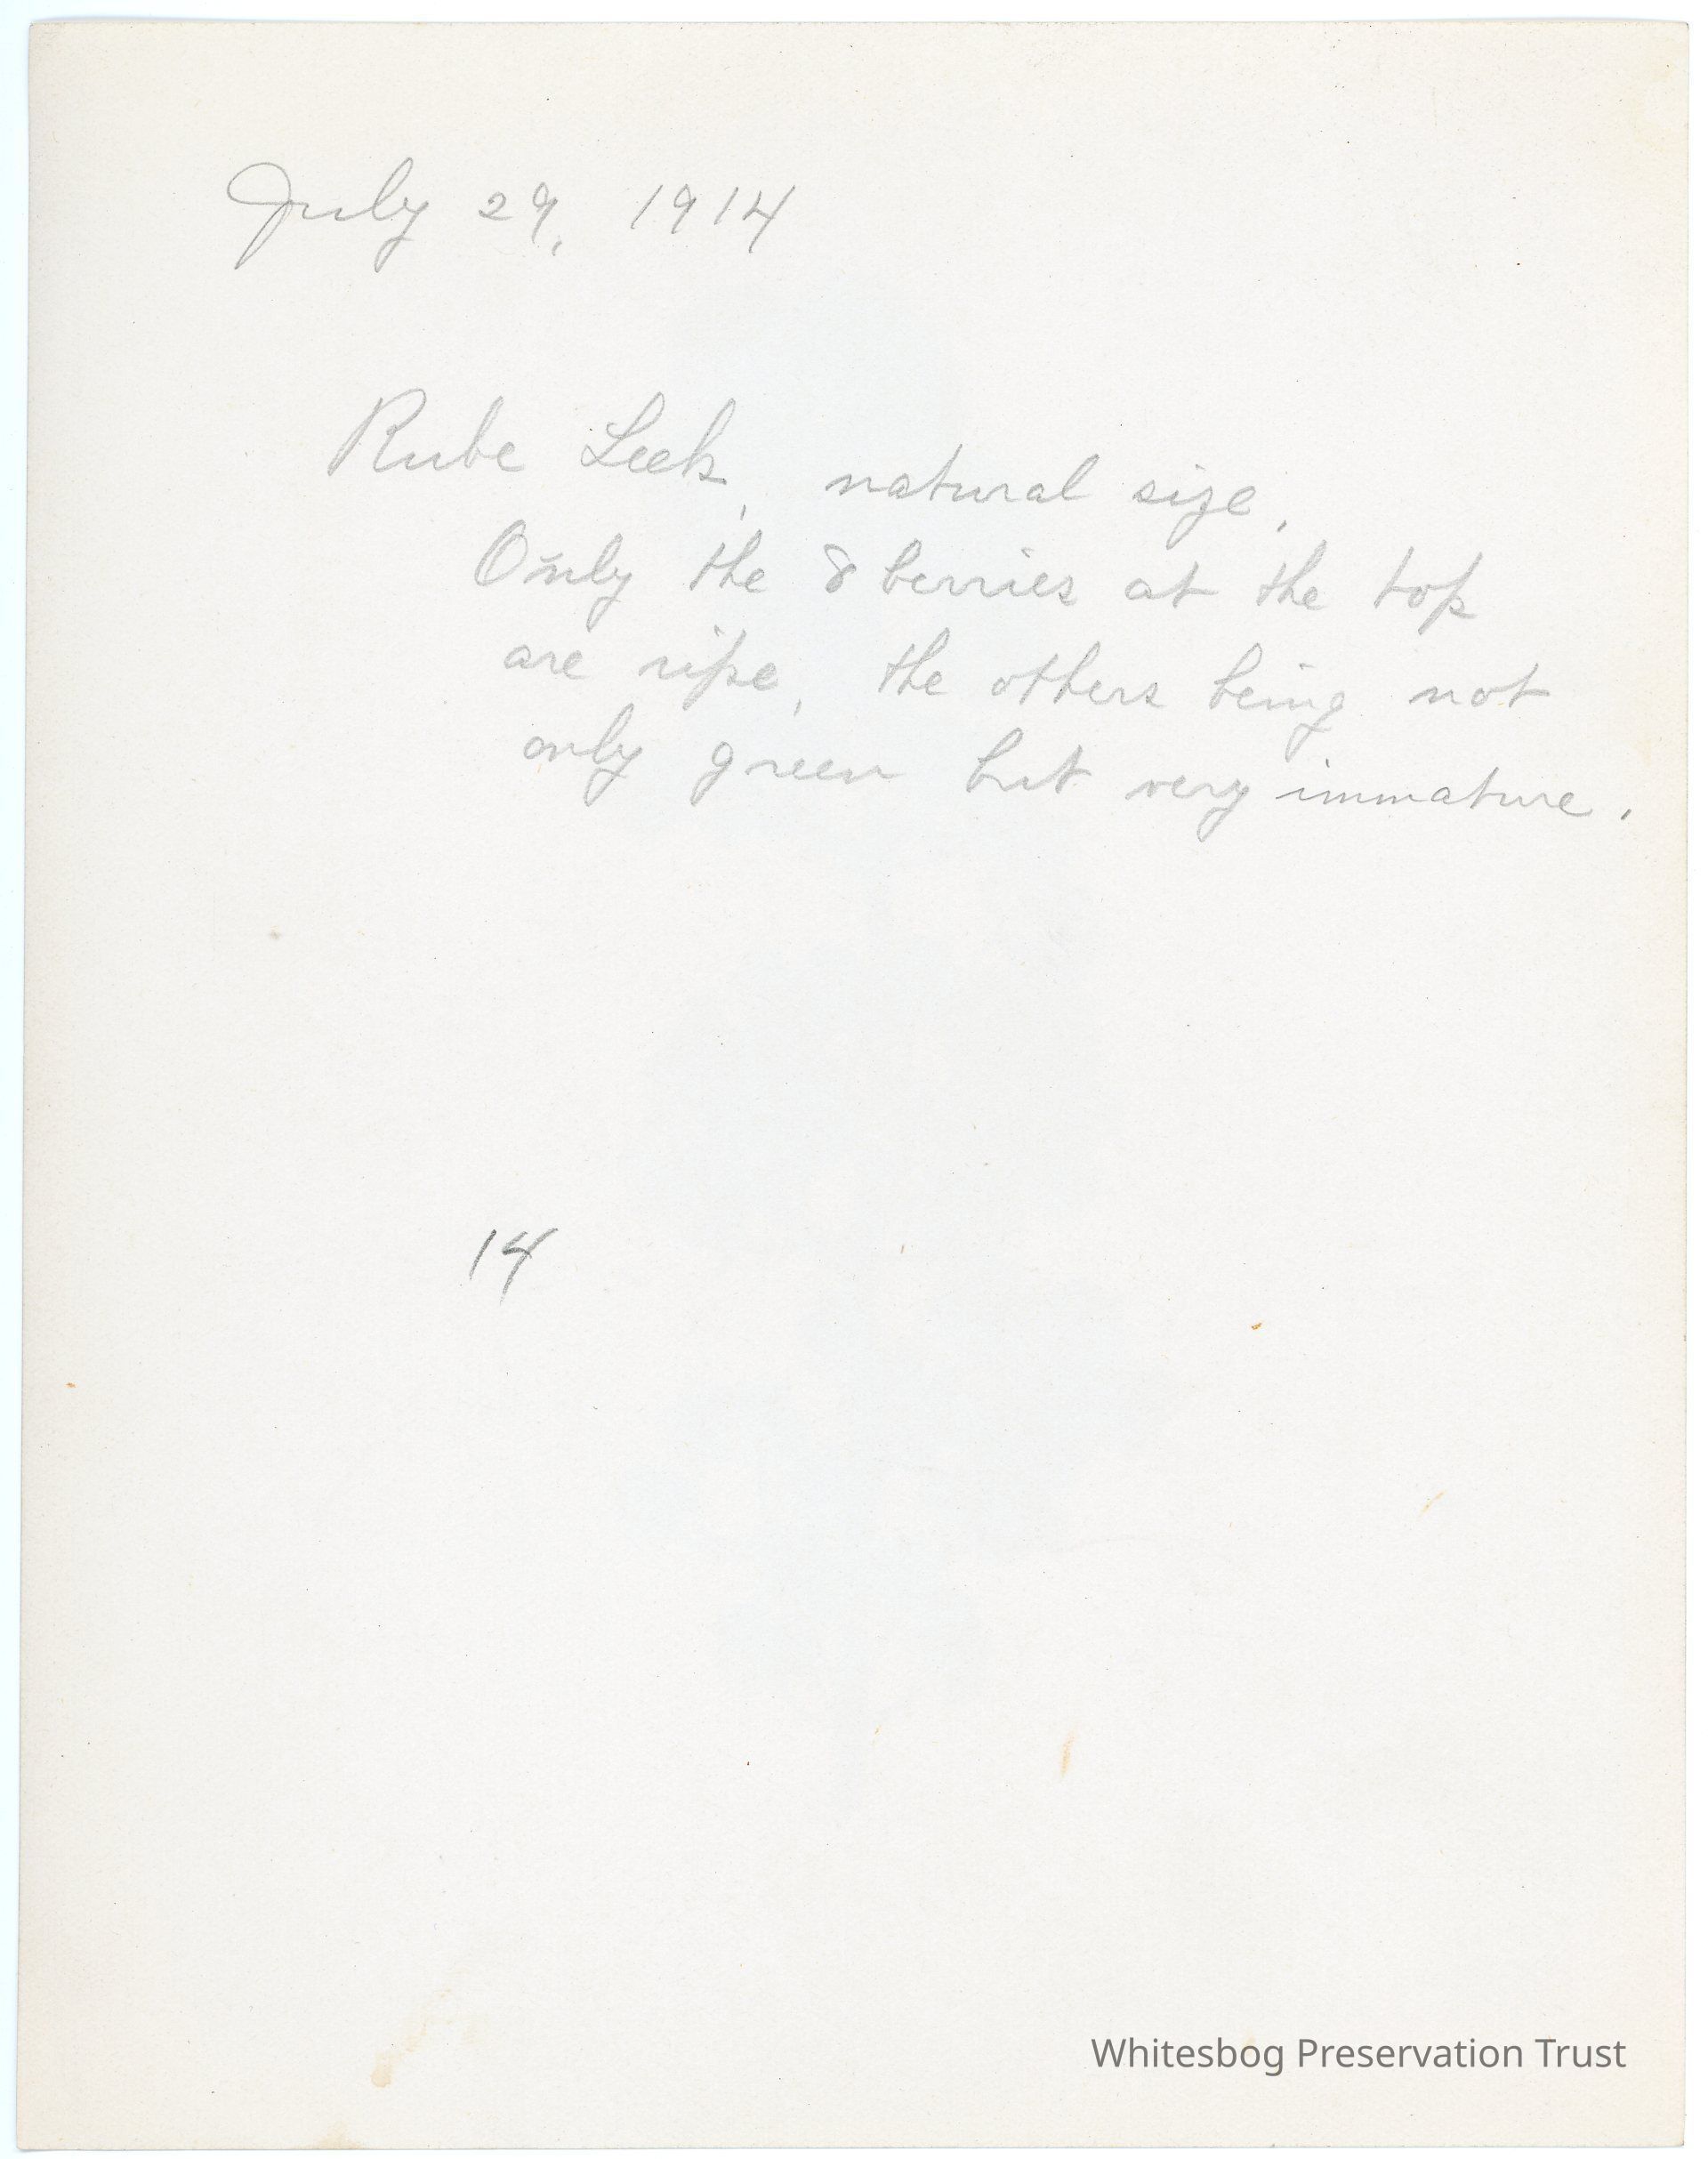 July 29, 1914
Rube Leek, natural size.
Only the 8 berries at the top
are ripe, the others being not
only green but very immature.
14
Whitesbog Preservation Trust